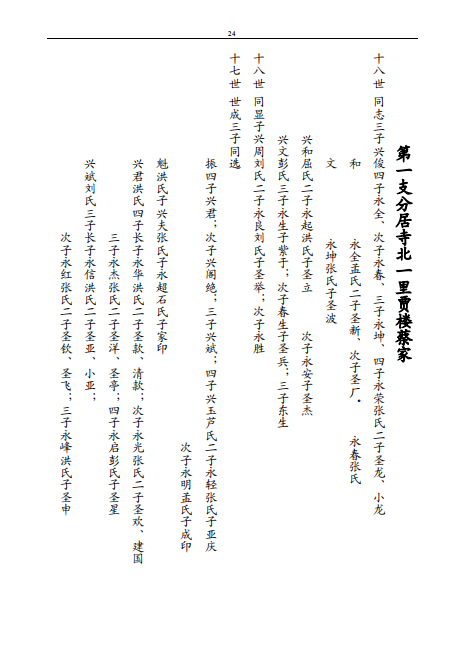 24
第一支分居寺北一里贾楼蔡家
十八世 同志三子兴俊四子永全、次子永春、三子永坤、四子永荣张氏二子圣龙、小龙
和 永全孟氏二子圣新、次子圣厂. 永春张氏
文 永坤张氏子圣波
兴和屈氏二子永起洪氏子圣立 次子永安子圣杰
兴文彭氏三子永生子紫于；次子春生子圣兵；三子东生
十八世 同显子兴周刘氏二子永良刘氏子圣举；次子永胜
十七世 世成三子同选
振四子兴君；次子兴阁绝；三子兴斌；四子兴玉芦氏二子永轻张氏子亚庆
次子永明孟氏子成印
魁洪氏子兴夫张氏子永超石氏子家印
兴君洪氏四子长子永华洪氏二子圣款、清款；次子永光张氏二子圣欢、建国
三子永杰张氏二子圣洋、圣亭；四子永启彭氏子圣星
兴斌刘氏三子长子永信洪氏二子圣亚、小亚；
次子永红张氏二子圣钦、圣飞；三子永峰洪氏子圣申